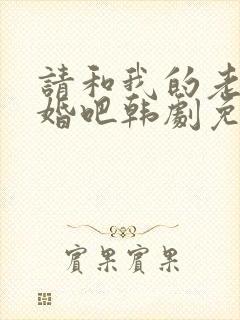 請和我的老
婚吧韩劇免
賓果賓果